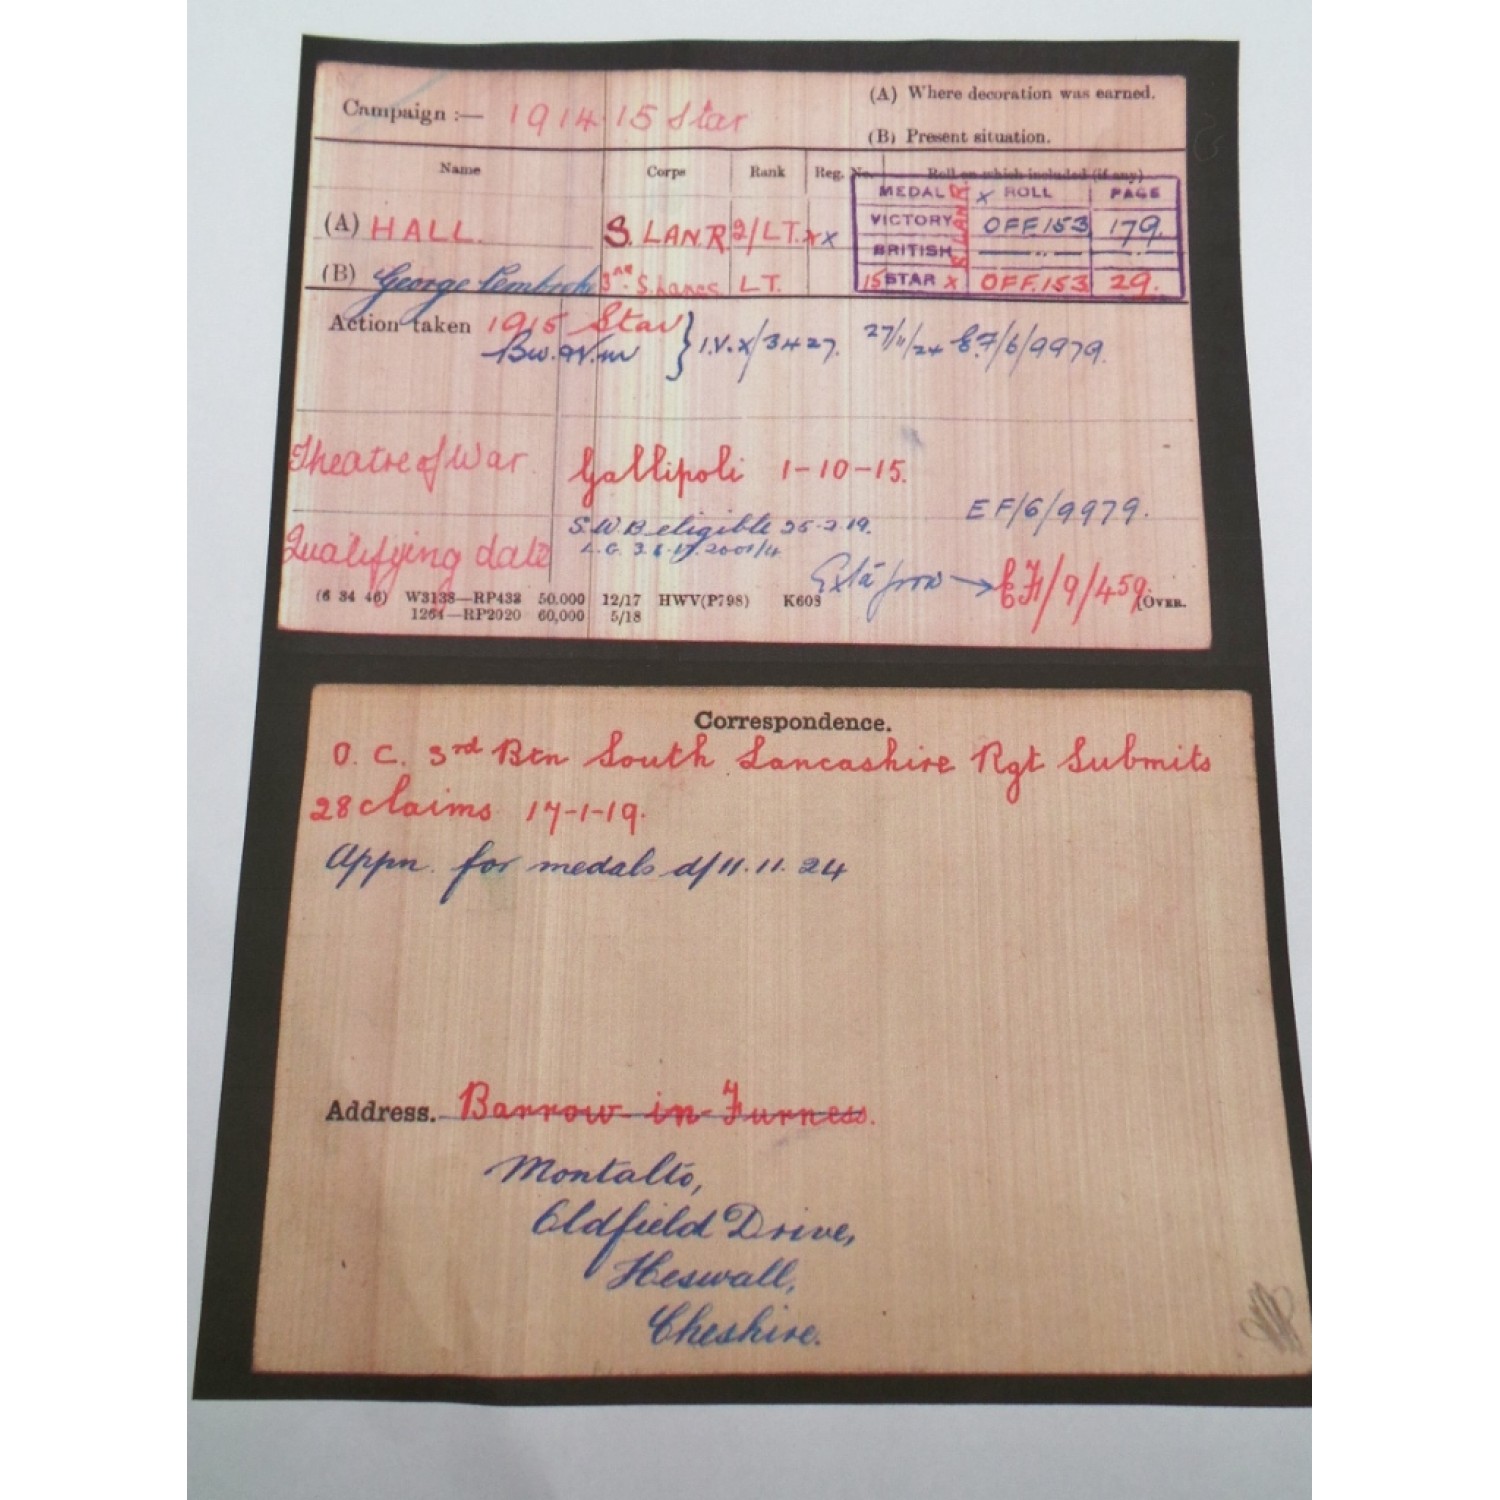 Campaign :— 1914 15 Star
(A) Where decoration was earned.
(B) Present situation.
Name Corps Rank Reg. No. Roll on which included (if any)
MEDAL X ROLL PAGE
(A) HALL. S. LAN.R. 2/LT. xx
VICTORY OFF.153 179.
BRITISH —„— —„—
S LAN R
(B) George Pembroke 3rd S. Lancs. LT.
15 STAR X OFF.153 29.
Action taken 1915 Star
Bw. & V.m } I.V.X/3427. 27/11/24 E.F/6/9979.
Theatre of War. Gallipoli 1-10-15.
EF/6/9979.
S.W.B eligible 25.2.19.
Qualifying date
(6 34 46) W3138—RP438 50,000 12/17 HWV(P798) K608
1264—RP2020 60,000 5/18
(OVER.
EF/9/459
Correspondence.
O. C. 3rd Btn South Lancashire Rgt Submits
28 claims 17-1-19.
Appn. for medals d/ 11.11.24
Address. Barrow-in-Furness.
Montalto,
Oldfield Drive,
Heswall,
Cheshire.